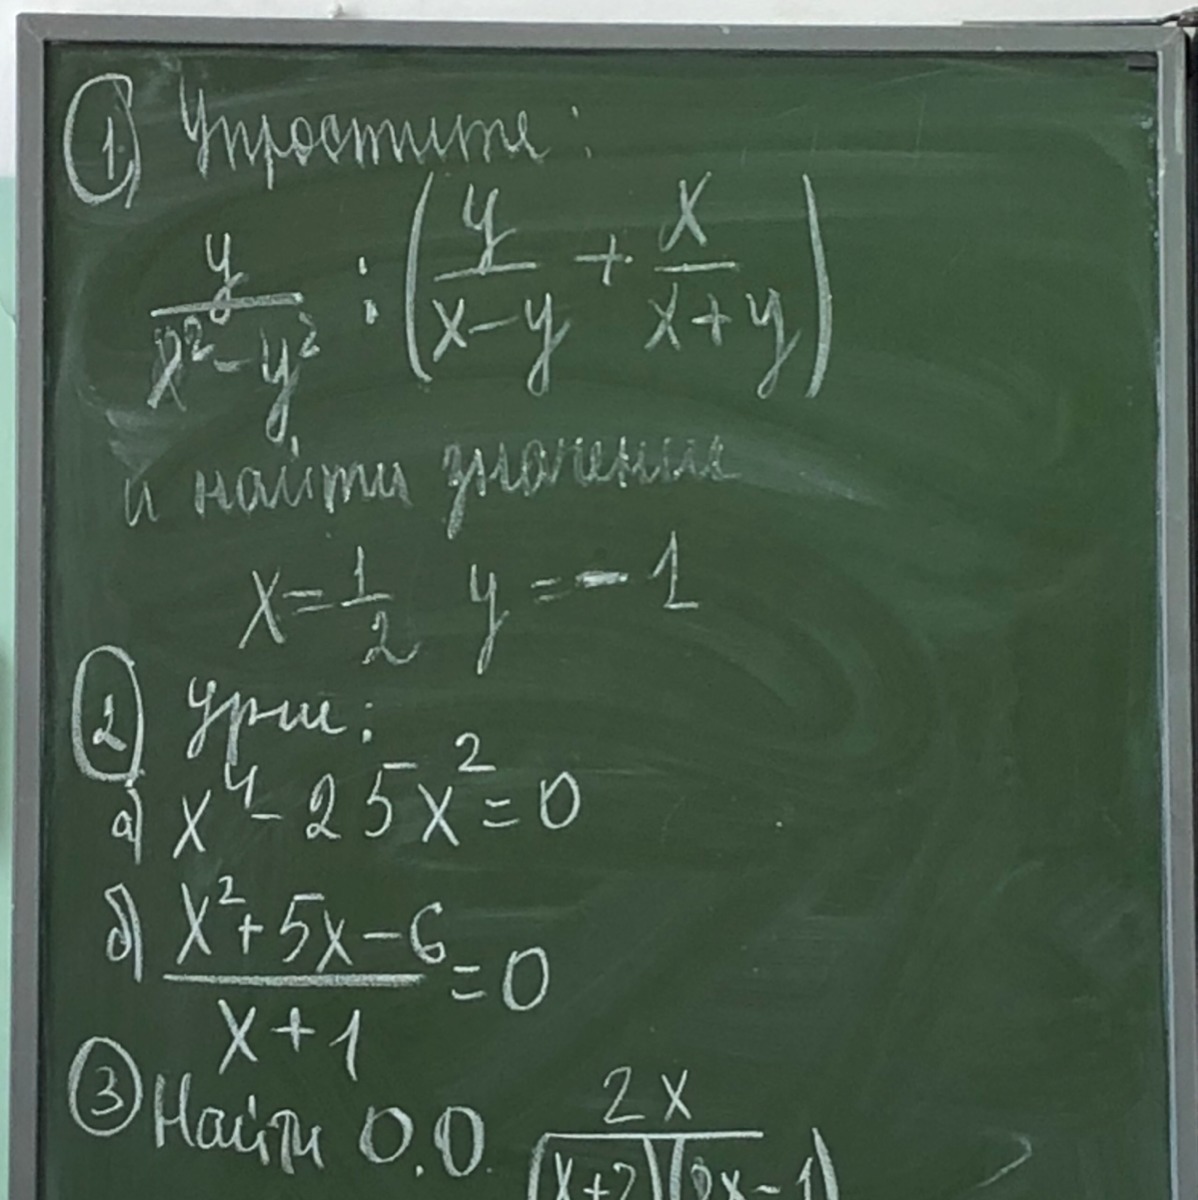 ① Упростите:
y/(x² - y²) : (y/(x-y) + x/(x+y))
и найти значение
x = 1/2 y = -1
② Урни:
а) x⁴ - 25x² = 0
б) (x² + 5x - 6)/(x+1) = 0
③ Найти О.О. 2x/((x+2)(2x-1))